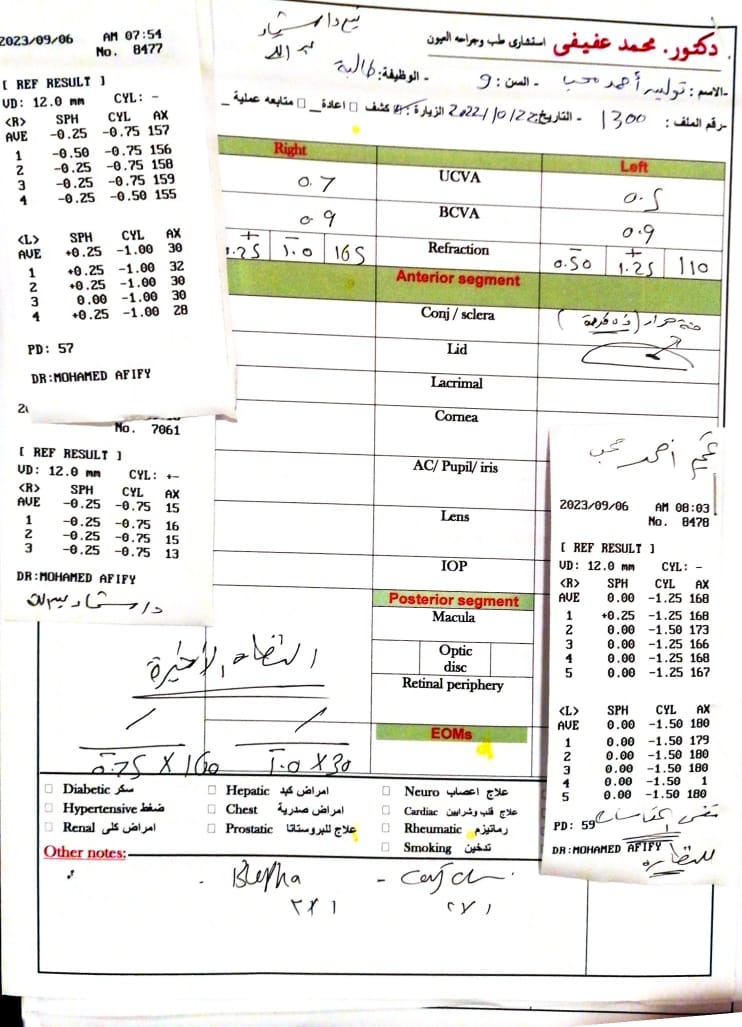 دكتور. محمد عفيفى استشارى طب وجراحه العيون
-الاسم: أحمد محب - السن: 9 - الوظيفة: طالبة
-رقم الملف: 1300 - التاريخ: 2022/10/22 الزيارة: كشف □ اعادة_ □ متابعه عملية_
2023/09/06 AM 07:54
No. 8477
[ REF RESULT ]
VD: 12.0 mm CYL: -
<R> SPH CYL AX
AVE -0.25 -0.75 157
1 -0.50 -0.75 156
2 -0.25 -0.75 158
3 -0.25 -0.75 159
4 -0.25 -0.50 155
<L> SPH CYL AX
AVE +0.25 -1.00 30
1 +0.25 -1.00 32
2 +0.25 -1.00 30
3 0.00 -1.00 30
4 +0.25 -1.00 28
PD: 57
DR:MOHAMED AFIFY
No. 7061
[ REF RESULT ]
VD: 12.0 mm CYL: +-
<R> SPH CYL AX
AVE -0.25 -0.75 15
1 -0.25 -0.75 16
2 -0.25 -0.75 15
3 -0.25 -0.75 13
DR:MOHAMED AFIFY
Right Left
0.7 UCVA 0.5
0.9 BCVA 0.9
+ 1.25 - 1.0 165 Refraction - 0.50 + 1.25 110
Anterior segment
Conj / sclera
Lid
Lacrimal
Cornea
AC/ Pupil/ iris
Lens
IOP
Posterior segment
Macula
Optic disc
Retinal periphery
EOMs
أحمد محب
2023/09/06 AM 08:03
No. 8478
[ REF RESULT ]
VD: 12.0 mm CYL: -
<R> SPH CYL AX
AVE 0.00 -1.25 168
1 +0.25 -1.25 168
2 0.00 -1.50 173
3 0.00 -1.25 166
4 0.00 -1.25 168
5 0.00 -1.25 167
<L> SPH CYL AX
AVE 0.00 -1.50 180
1 0.00 -1.50 179
2 0.00 -1.50 180
3 0.00 -1.50 180
4 0.00 -1.50 1
5 0.00 -1.50 180
PD: 59
DR:MOHAMED AFIFY
للنظارة
النظاره الأخيرة
0.75 X 160 1.0 X 30
□ Diabetic سكر □ Hepatic امراض كبد □ Neuro علاج اعصاب
□ Hypertensive ضغط □ Chest امراض صدرية □ Cardiac علاج قلب وشرايين
□ Renal امراض كلى □ Prostatic علاج للبروستاتا □ Rheumatic رماتيزم
□ Smoking تدخين
Other notes:
- Blepha
١ x ٢
١ x ٢